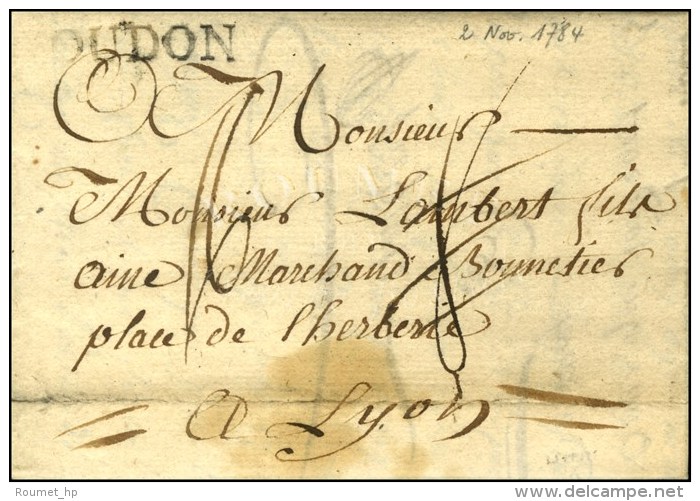 OUDON
2 Nov. 1784
Monsieur
Monsieur Lambert fils
ainé Marchand Bonnetier
place de l'herberie
A Lyon
Roumet_hp
delcampe.net